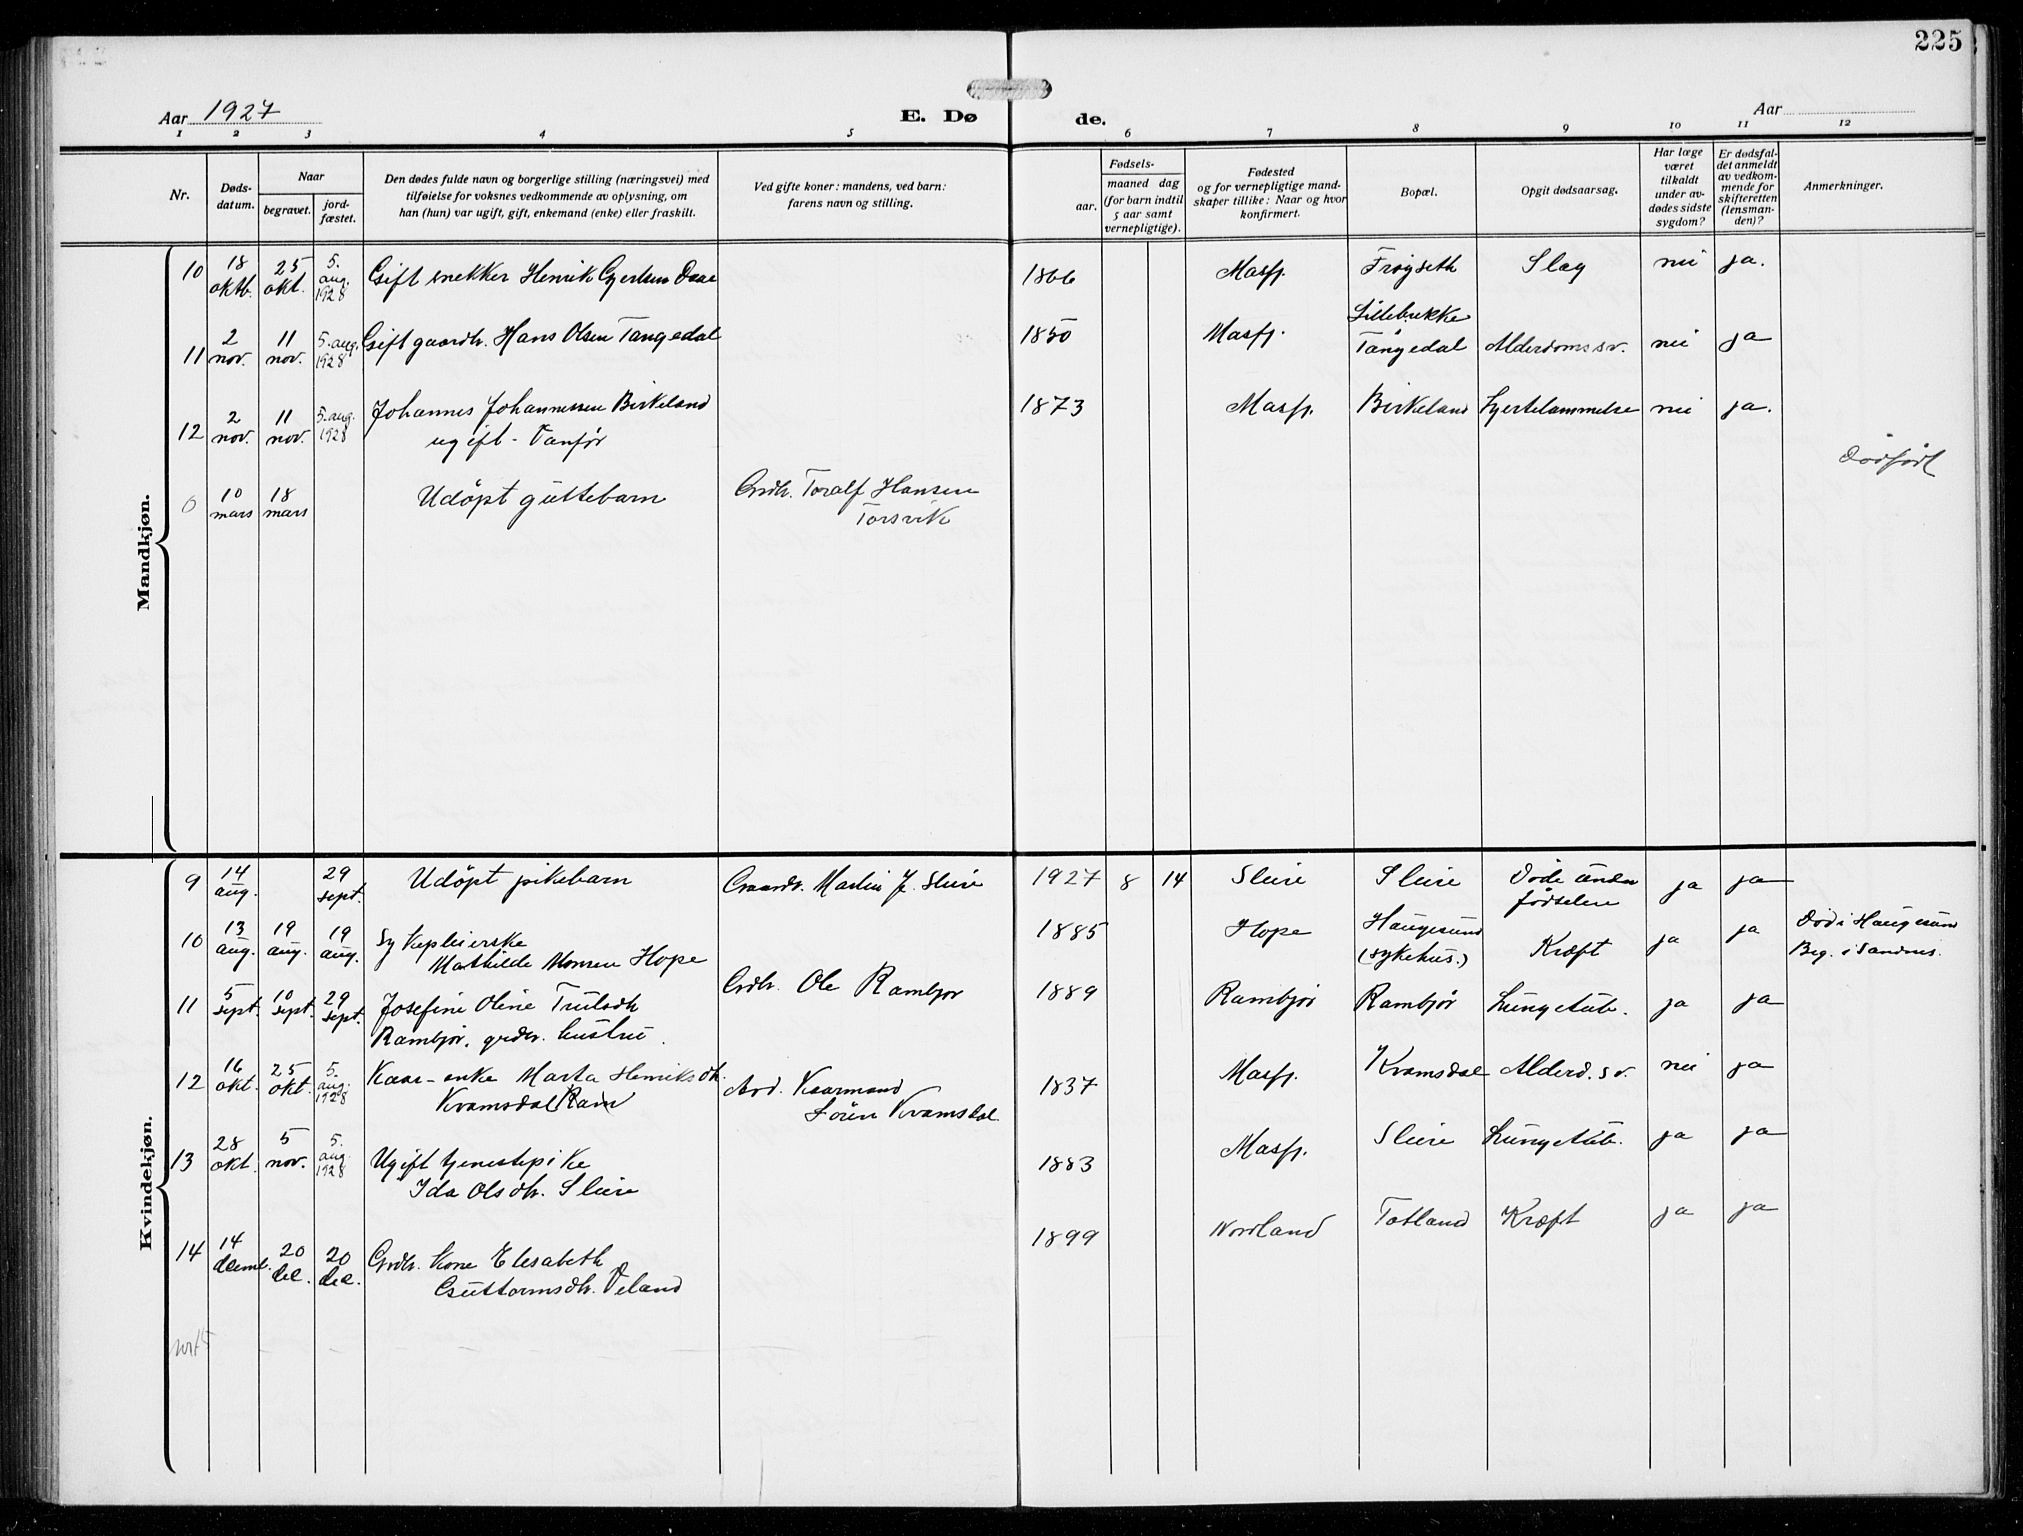 225
Aar 1927
E. Døde.
Aar
1 2 3 4 5 6 7 8 9 10 11 12
Nr.
Døds-
datum.
Naar
begravet.
jord-
fæstet.
Den dødes fulde navn og borgerlige stilling (næringsvei) med
tilføielse for voksnes vedkommende av oplysning, om
han (hun) var ugift, gift, enkemand (enke) eller fraskilt.
Ved gifte koner: mandens, ved barn:
farens navn og stilling.
Fødsels-
aar.
maaned dag
(for barn indtil
5 aar samt
vernepligtige).
Fødested
og for vernepligtige mand-
skaper tillike: Naar og hvor
konfirmert.
Bopæl.
Opgit dødsaarsag.
Har læge
været
tilkaldt
under av-
dødes sidste
sygdom?
Er dødsfal-
det anmeldt
av vedkom-
mende for
skifteretten
(lensman-
den)?
Anmerkninger.
Mandkjøn.
10 18 oktb. 25 okt. 5. aug. 1928 Gift snekker Henrik Gjertsen Daae 1866 Masfj. Frøyseth Slag nei ja.
Lillebrekke
11 2 nov. 11 nov. 5. aug. 1928 Gift gaardbr. Hans Olsen Tangedal 1850 Masfj. Tangedal Alderdomssv. nei ja
12 2 nov. 11 nov. 5. aug. 1928 Johannes Johannessen Birkeland 1873 Masfj. Birkeland Hjertelammelse nei ja.
ugift - Vanfør
0 10 mars 18 mars Udöpt guttebarn Grdbr. Toralf Hansen Dödfödt
Torsvik
Kvindekjøn.
9 14 aug. 29 sept. Udöpt pikebarn Gaardbr. Martin J. Sleire 1927 8 14 Sleire Sleire Döde under ja ja
födselen
10 13 aug. 19 aug. 19 aug. Sykepleierske 1885 Hope Haugesund Kræft ja ja Död i Haugesund
Mathilde Monsen Hope (sykehus.) Beg. i Sandnes.
11 5 sept. 10 sept. 29 sept. Josefine Oline Trulsdtr. Grdbr. Ole Rambjør 1889 Rambjør Rambjør Lungetub. ja ja
Rambjør, grdbr. hustru.
12 16 okt. 25 okt. 5. aug. 1928 Kaar-enke Marta Henriksdtr. Avd. Kaarmand 1837 Masfj. Kvamsdal Alderd.sv. nei ja
Kvamsdal Sören Kvamsdal
13 28 okt. 5 nov. 5. aug. 1928 Ugift tjenestepike 1883 Masfj. Sleire Lungetub. ja ja
Ida Olsdtr. Sleire
14 14 decemb. 20 dec. 20 dec. Grdbr. kone Elesabeth 1899 Nordland Totland Kræft ja ja
Guttormsdtr. Veland